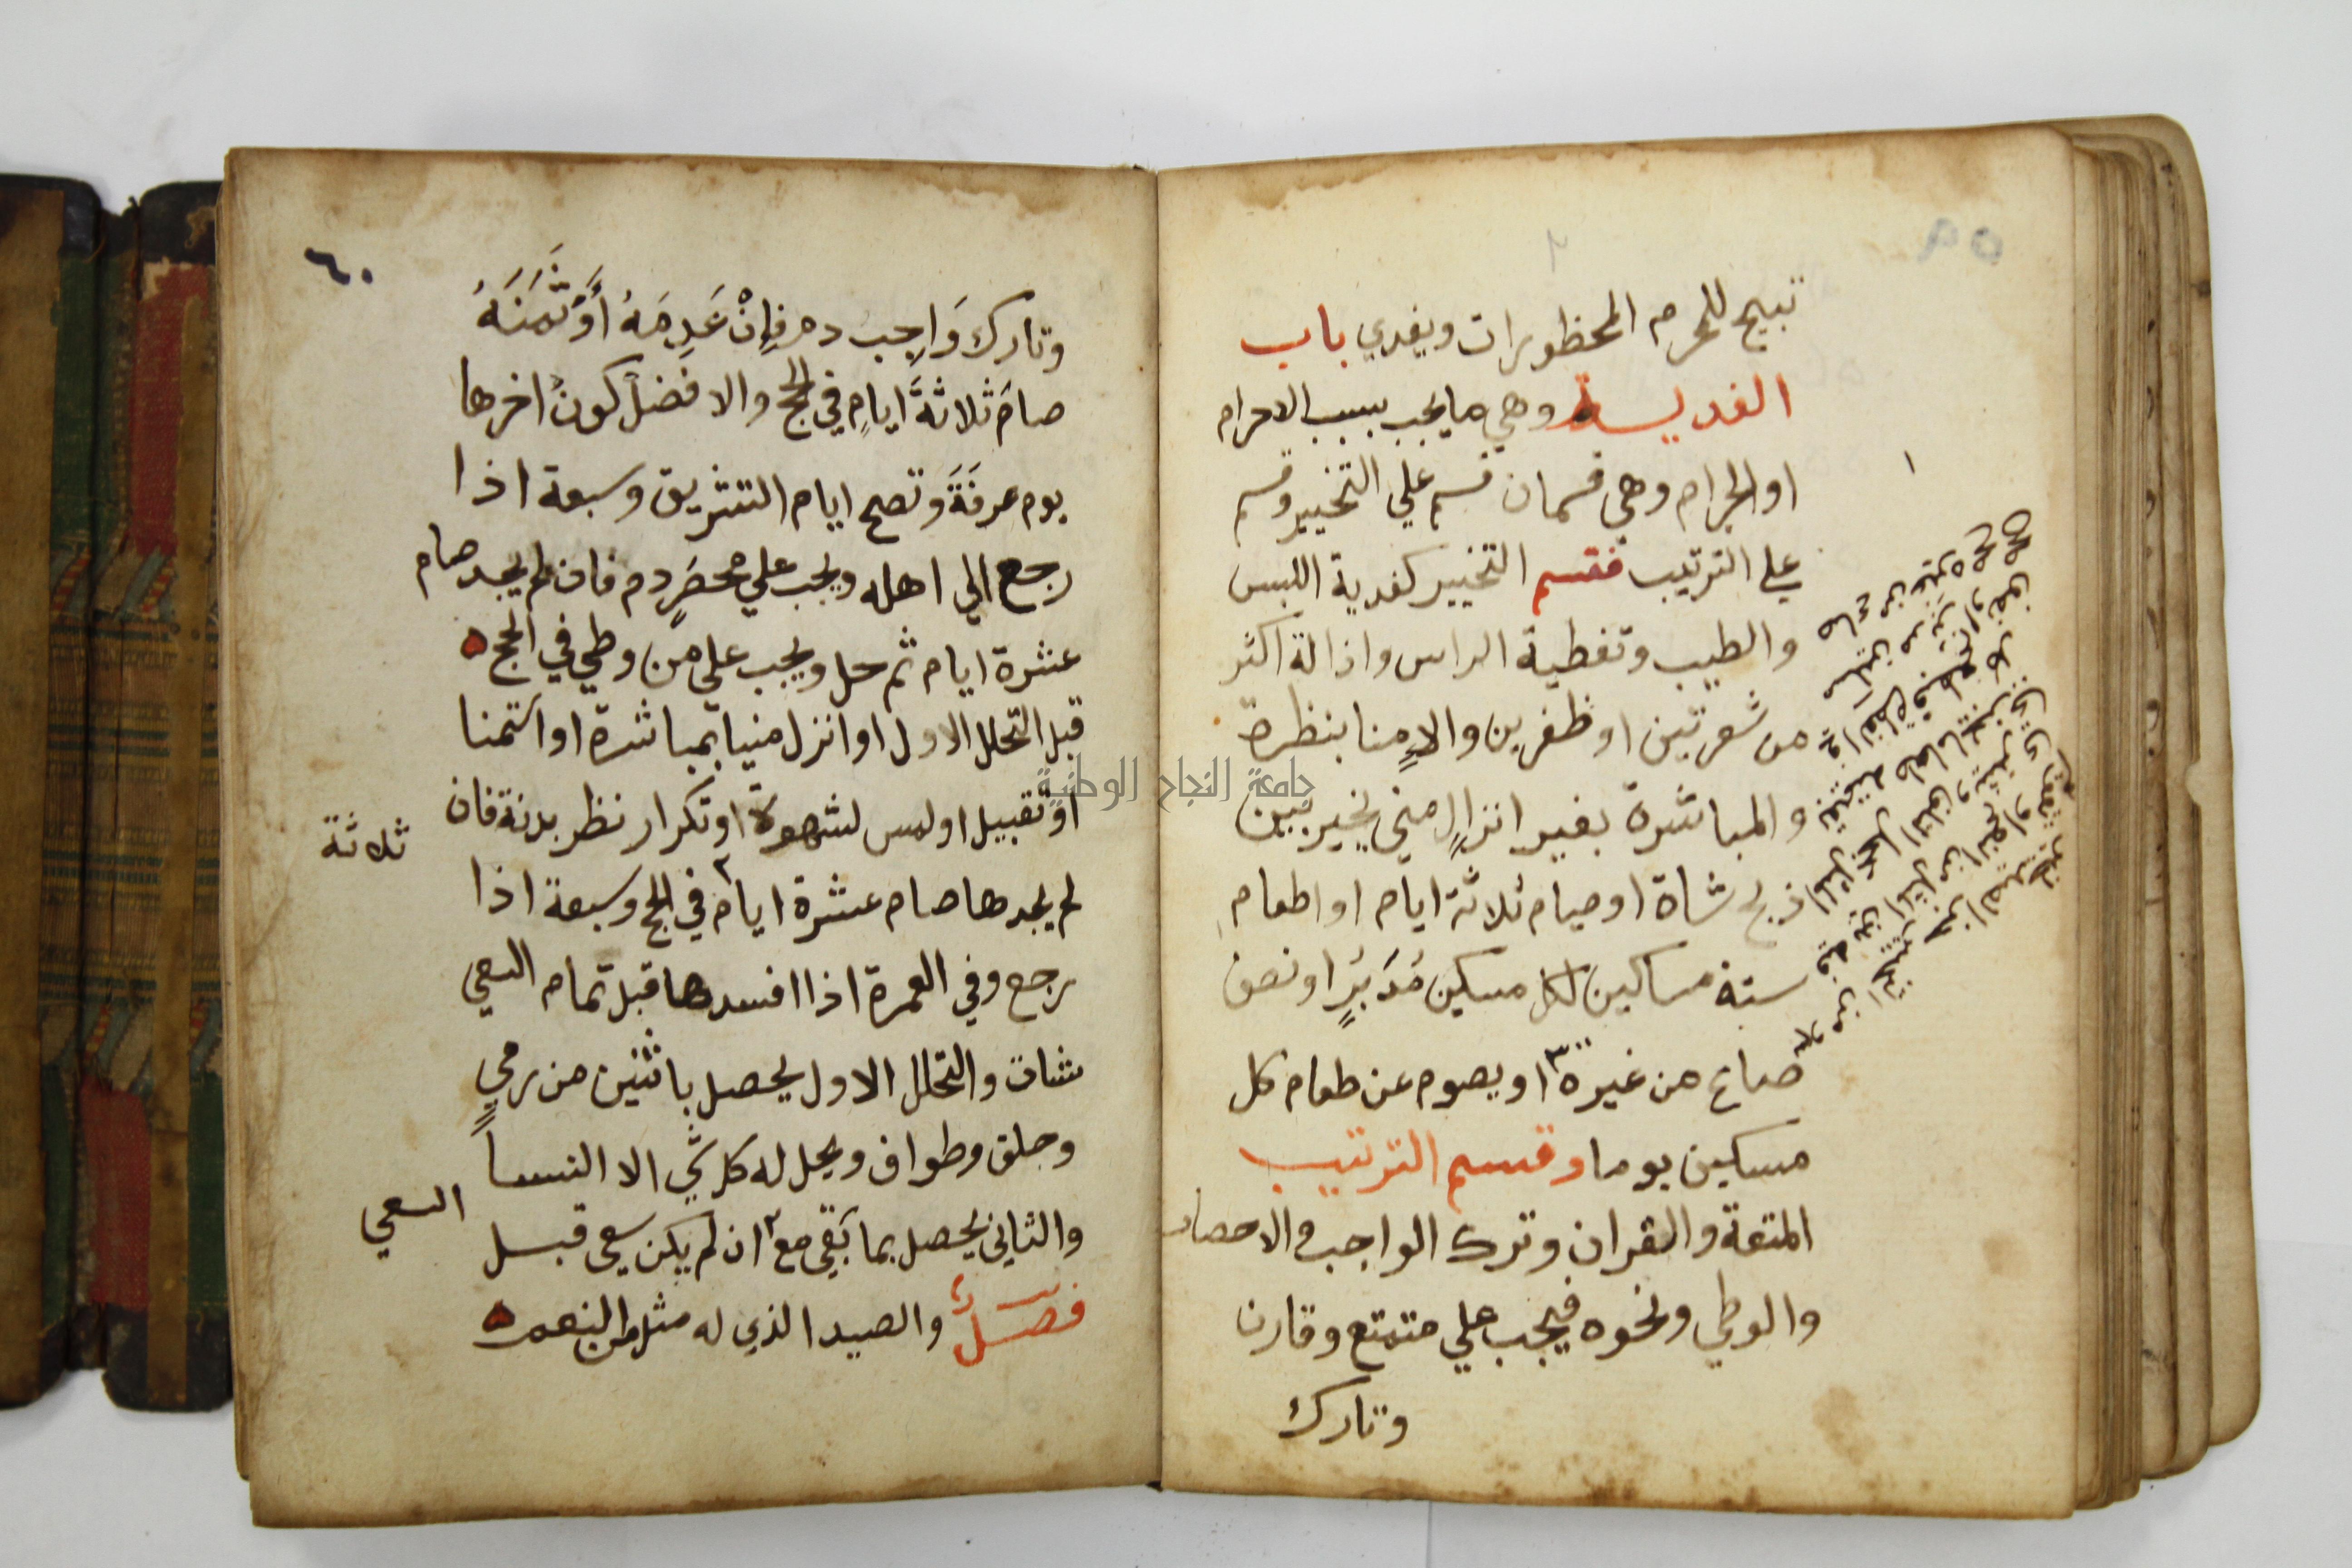 تبيح للمحرم المحظورات ويفدي باب
الفدية وهي ما يجب بسبب الاحرام
او الحرام وهي قسمان قسم علي التخيير وقسم
علي الترتيب فقسم التخيير كفدية اللبس
والطيب وتغطية الراس وازالة اكثر
من شعرتين او ظفرين والامنا بنظرة
والمباشرة بغير انزال مني يخير بين
ذبح شاة او صيام ثلاثة ايام او اطعام
ستة مساكين لكل مسكين مُدَ بُرٍ او نصف
صاع من غيره او يصوم عن طعام كل
مسكين يوما وقسم الترتيب
المتعة والقران وترك الواجب والاحصار
والوطي ونحوه فيجب علي متمتع وقارن
وتارك
٦٠
وتارك وَاجِب دم فإِنْ عَدِمَهُ أَوْ ثَمَنَهُ
صامَ ثلاثةَ ايامٍ في الحج والافضل كونُ اخرها
يوم عرفَةَ وتصح ايام التشريق وسبعة اذا
رجع الي اهله ويجب علي محصَرٍ دم فان لم يجد صام
عشرة ايام ثم حل ويجب علي من وطي في الحج
قبل التحلل الاول او انزل منيا بمباشرة او استمنا
او تقبيل او لمس لشهوة او تكرار نظر بدنة فان
ثلاثة
لم يجدها صام عشرة ايام ٢ في الحج وسبعة اذا
رجع وفي العمرة اذا افسدها قبل تمام السعي
شات والتحلل الاول يحصل باثنين من رمي
وحلق وطواف ويحل له كل شي الا النساً
السعي
والثاني يحصل بما بقي مع ٢ ان لم يكن سعي قبل
فصل والصيد الذي له مثل من النعم
جامعة النجاح الوطنية